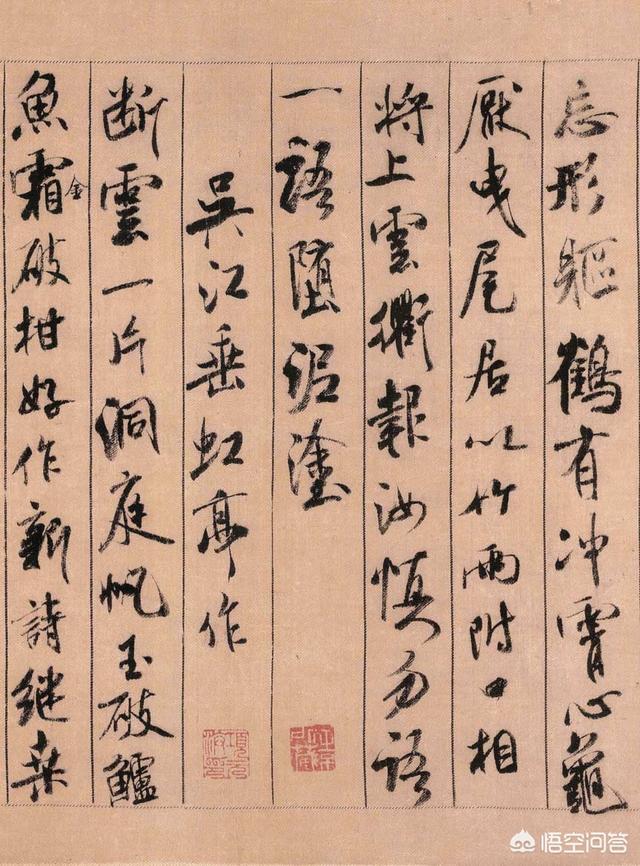 忘形軀鶴有冲霄心龜
厭曳尾居以竹兩附口相
將上雲衢報汝慎勿語
一語墮泥塗
吳江垂虹亭作
断雲一片洞庭帆玉破鱸
魚霜金破柑好作新詩継桒
悟空问答